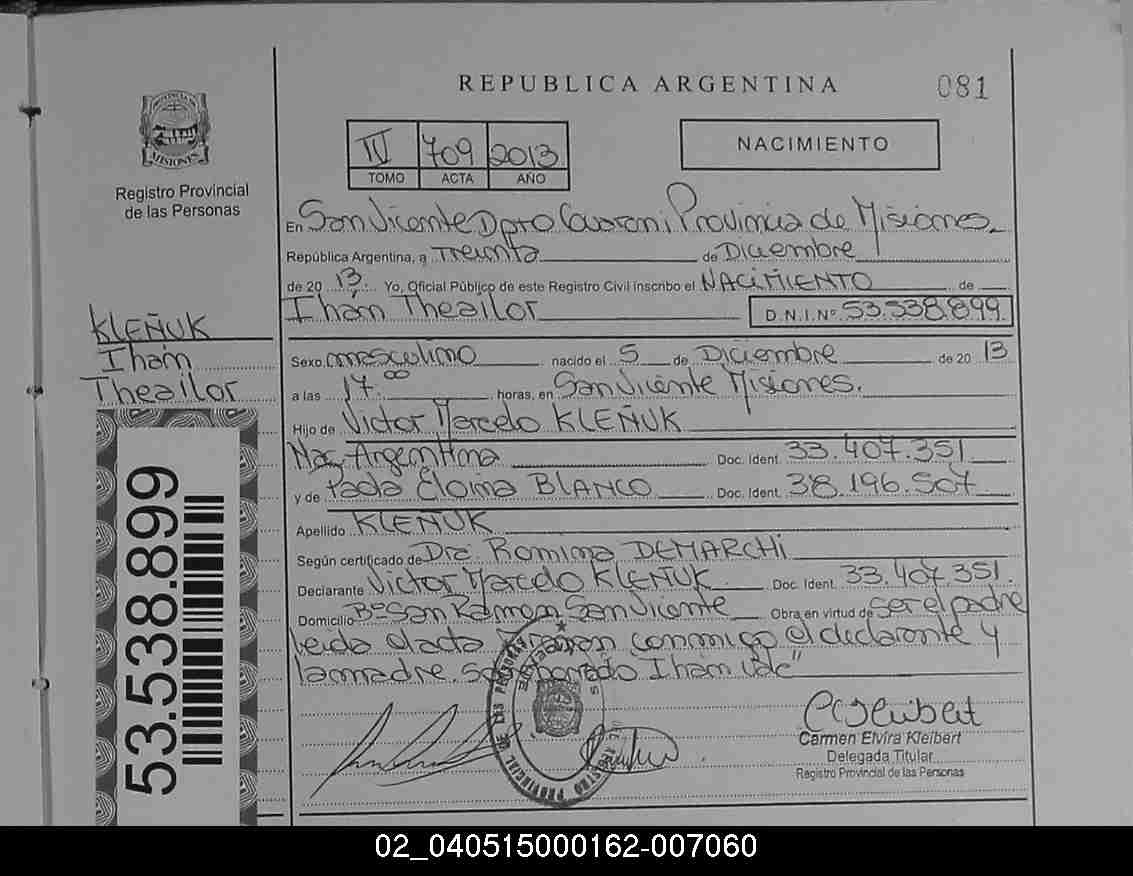 REPUBLICA ARGENTINA
081
PROVINCIA DE
MISIONES
Registro Provincial
de las Personas
IV 709 2013
TOMO ACTA AÑO
NACIMIENTO
En San Vicente Dpto Guarani Provincia de Misiones
República Argentina, a Treinta de Diciembre
de 20 13 Yo, Oficial Público de este Registro Civil inscribo el NACIMIENTO de
Ihám Theailor D.N.I.Nº 53.538.899
KLEÑUK
Ihám
Theailor
Sexo masculino nacido el 5 de Diciembre de 20 13
a las 17.00 horas, en San Vicente Misiones.
Hijo de Victor Marcelo KLEÑUK
Nac Argentina Doc. Ident. 33.407.351
y de Paola Eloina BLANCO Doc. Ident. 38.196.507
Apellido KLEÑUK
Según certificado de Dra. Romina DEMARCHI
Declarante Victor Marcelo KLEÑUK Doc. Ident. 33.407.351.
Domicilio Bº San Ramon San Vicente Obra en virtud de ser el padre
leida el acta firman conmigo el declarante y
la madre. borrado Ihám vale"
53.538.899
REGISTRO PROVINCIAL DE LAS PERSONAS
Carmen Elvira Kleibert
Delegada Titular
Registro Provincial de las Personas
02_040515000162-007060